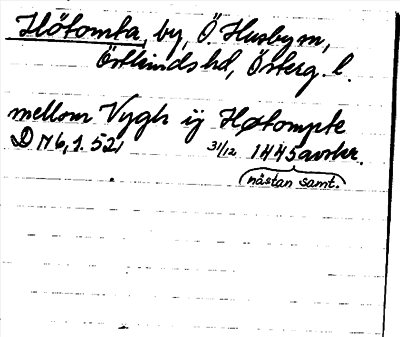 Hötomta, by, Ö. Husby sn,
Östkinds hd, Österg. l.
mellom Vygh ij Høtompte
D N 6, 1. 521 31/12 1445 avskr.
nästan samt.